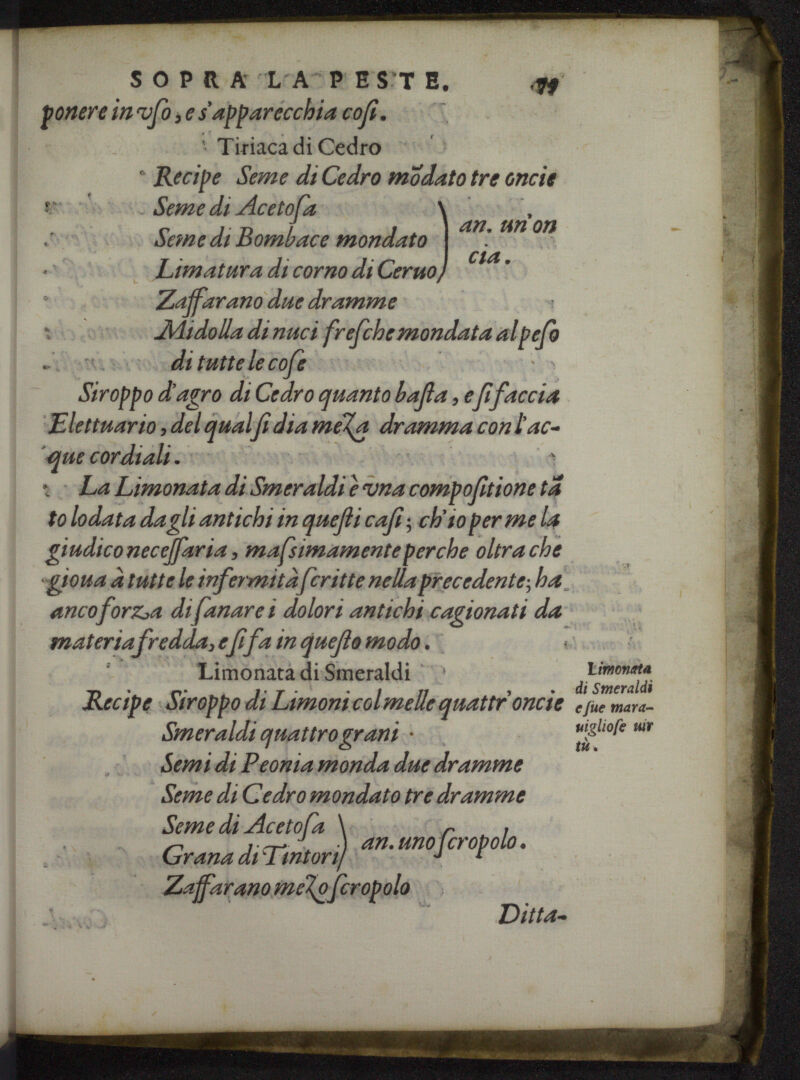 SOPRA LA PESTE. 79
ponere in vſo, e s'apparecchia coſi.
Tiriaca di Cedro
Recipe Seme di Cedro mōdato tre oncie
Seme di Acetoſa
Seme di Bombace mondato
Limatura di corno di Ceruo
an. un'on
cia.
Zaffarano due dramme
Midolla di nuci freſche mondata al peſo
di tutte le coſe
Siroppo d'agro di Cedro quanto baſta, e ſi faccia
Elettuario, del qual ſi dia meza dramma con l'ac-
que cordiali.
La Limonata di Smeraldi è vna compoſitione tā
to lodata da gli antichi in queſti caſi; ch'io per me la
giudico neceſſaria, maſsimamente perche oltra che
gioua à tutte le infermità ſcritte nella precedente; ha
anco forza di ſanare i dolori antichi cagionati da
materia fredda, e ſi fa in queſto modo.
Limonata di Smeraldi
Limonata
di Smeraldi
e ſue mara-
uiglioſe uir
tù.
Recipe Siroppo di Limoni col melle quattr'oncie
Smeraldi quattro grani
Semi di Peonia monda due dramme
Seme di Cedro mondato tre dramme
Seme di Acetoſa
Grana di Tintori
an. uno ſcropolo.
Zaffarano mezo ſcropolo
Ditta-